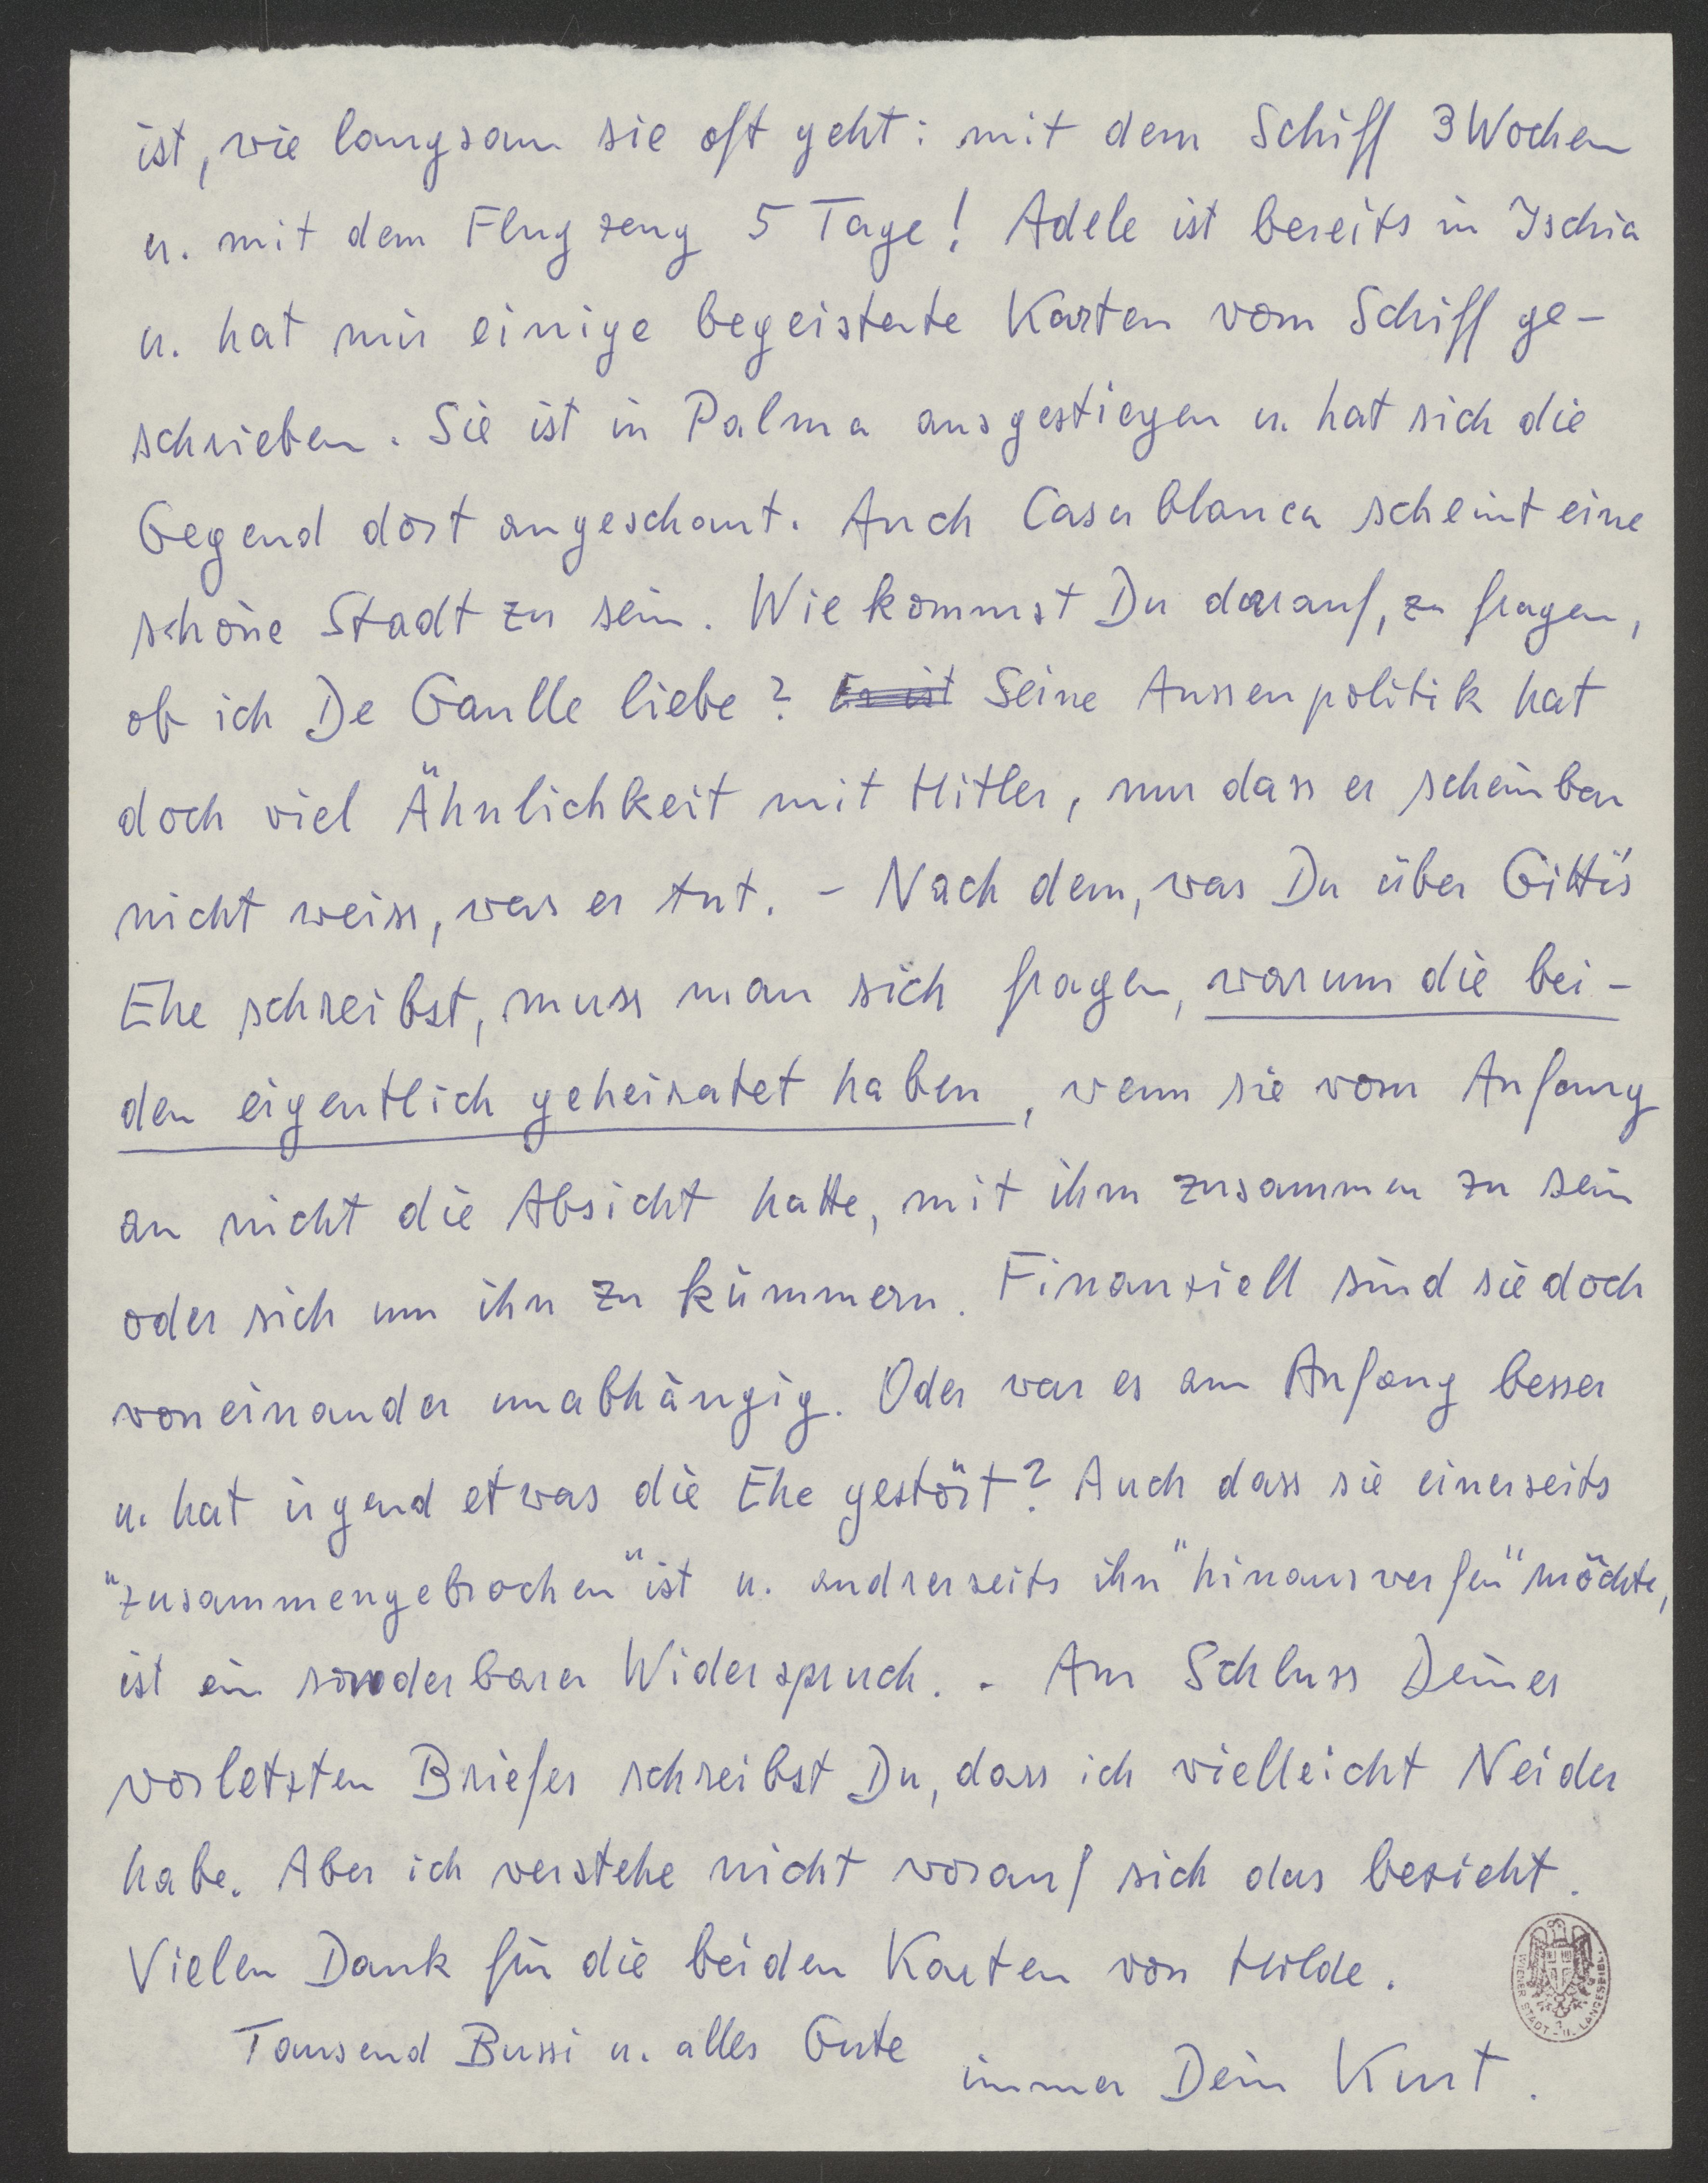 ist, wie langsam sie oft geht: mit dem Schiff 3 Wochen
u. mit dem Flugzeug 5 Tage! Adele ist bereits in Ischia
u. hat mir einige begeisterte Karten vom Schiff ge-
schrieben. Sie ist in Palma ausgestiegen u. hat sich die
Gegend dort angeschaut. Auch Casablanca scheint eine
schöne Stadt zu sein. Wie kommst Du darauf, zu fragen,
ob ich De Gaulle liebe? Er ist Seine Aussenpolitik hat
doch viel Ähnlichkeit mit Hitler, nur dass er scheinbar
nicht weiss, was er tut. – Nach dem, was Du über Gitti's
Ehe schreibst, muss man sich fragen, warum die bei-
den eigentlich geheiratet haben, wenn sie vom Anfang
an nicht die Absicht hatte, mit ihm zusammen zu sein
oder sich um ihn zu kümmern. Finanziell sind sie doch
voneinander unabhängig. Oder war es am Anfang besser
u. hat irgend etwas die Ehe gestört? Auch dass sie einerseits
"zusammengebrochen" ist u. andrerseits ihn "hinauswerfen" möchte,
ist ein sonderbarer Widerspruch. - Am Schluss Deines
vorletzten Briefes schreibst Du, dass ich vielleicht Neider
habe. Aber ich verstehe nicht worauf sich das bezieht.
Vielen Dank für die beiden Karten von Hilde.
Tausend Bussi u. alles Gute
immer Dein Kurt.
WIENER STADT- U. LANDESBIBL.